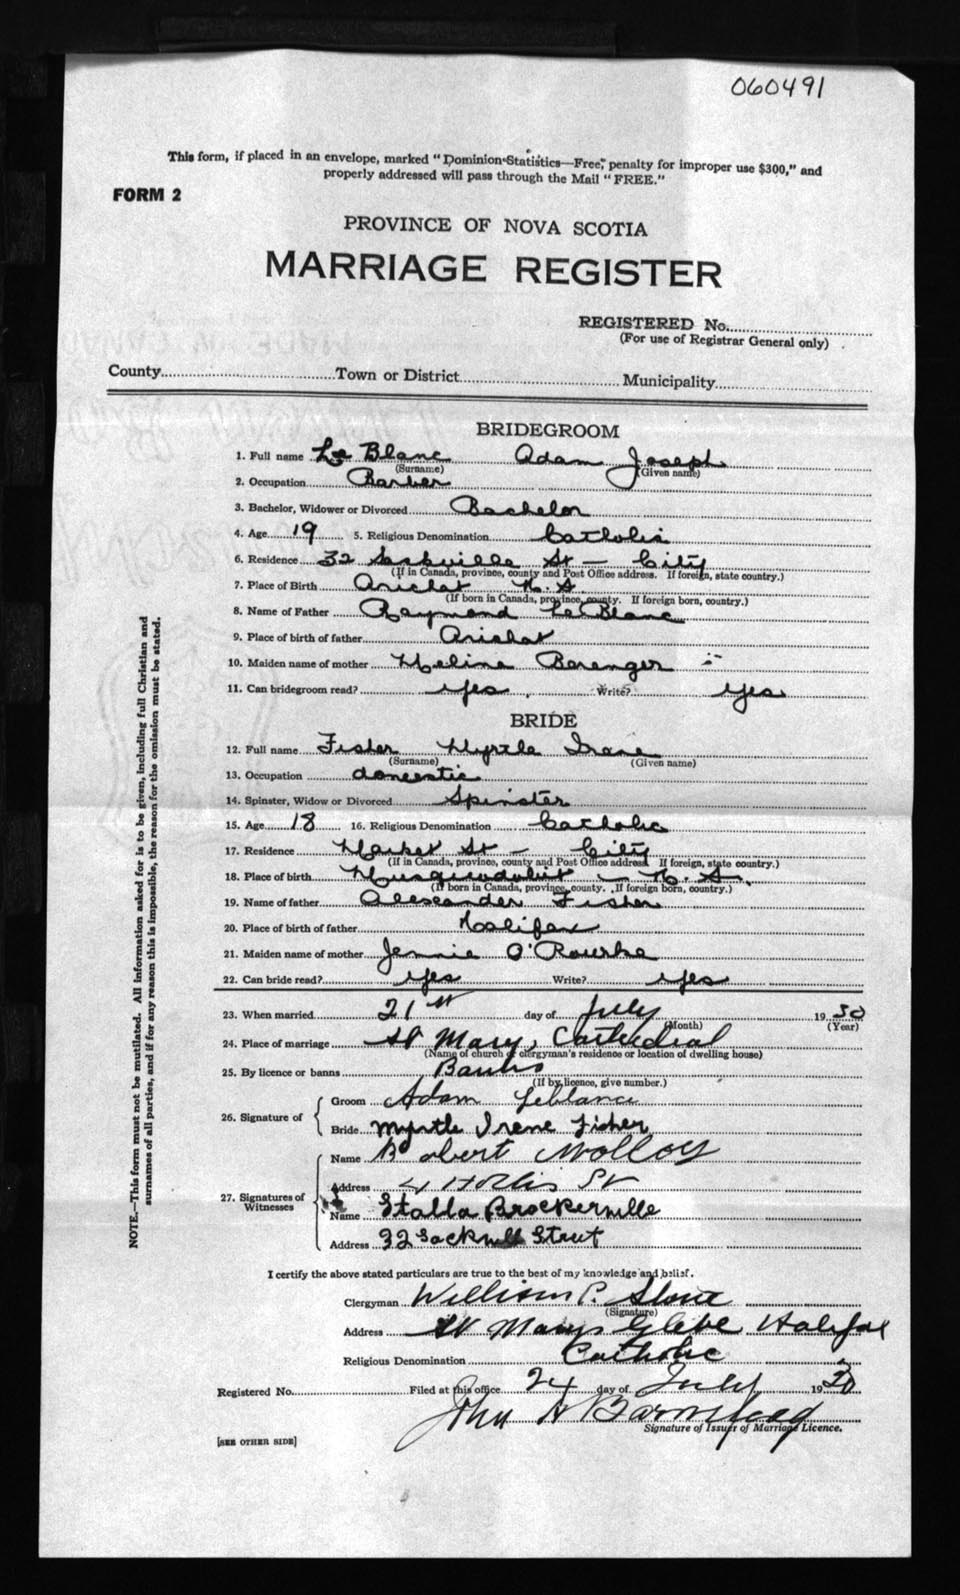 060491
This form, if placed in an envelope, marked "Dominion Statistics—Free; penalty for improper use $300," and
properly addressed will pass through the Mail "FREE."
FORM 2
PROVINCE OF NOVA SCOTIA
MARRIAGE REGISTER
REGISTERED No.
(For use of Registrar General only)
County Town or District Municipality
BRIDEGROOM
1. Full name Le Blanc Adam Joseph
(Surname) (Given name)
2. Occupation Barber
3. Bachelor, Widower or Divorced Bachelor
4. Age 19 5. Religious Denomination Catholic
6. Residence 32 Sackville St – City
(If in Canada, province, county and Post Office address. If foreign, state country.)
7. Place of Birth Arichat N. S.
(If born in Canada, province, county. If foreign born, country.)
8. Name of Father Raymond Le Blanc
9. Place of birth of father Arichat
10. Maiden name of mother Melina Berenger
11. Can bridegroom read? yes Write? yes
BRIDE
12. Full name Fisher Myrtle Irene
(Surname) (Given name)
13. Occupation domestic
14. Spinster, Widow or Divorced Spinster
15. Age 18 16. Religious Denomination Catholic
17. Residence Market St – City
(If in Canada, province, county and Post Office address. If foreign, state country.)
18. Place of birth Musquodoboit – N. S.
(If born in Canada, province, county. If foreign born, country.)
19. Name of father Alexander Fisher
20. Place of birth of father Halifax
21. Maiden name of mother Jennie O'Rourke
22. Can bride read? yes Write? yes
23. When married 21st day of July 1930
(Month) (Year)
24. Place of marriage St Mary's Cathedral
(Name of church or clergyman's residence or location of dwelling house)
25. By licence or banns Banns
(If by licence, give number.)
26. Signature of
Groom Adam Leblanc
Bride Myrtle Irene Fisher
27. Signatures of Witnesses
Name Robert Molloy
Address 4 Hollis St
Name Stella Brockerville
Address 32 Sackville Street
I certify the above stated particulars are true to the best of my knowledge and belief.
Clergyman William P.
(Signature)
Address St Marys Glebe Halifax
Religious Denomination Catholic
Registered No. Filed at this office 24 day of July 1930
John A Barnstead
Signature of Issuer of Marriage Licence.
[SEE OTHER SIDE]
NOTE.—This form must not be mutilated. All information asked for is to be given, including full Christian and
surnames of all parties, and if for any reason this is impossible, the reason for the omission must be stated.